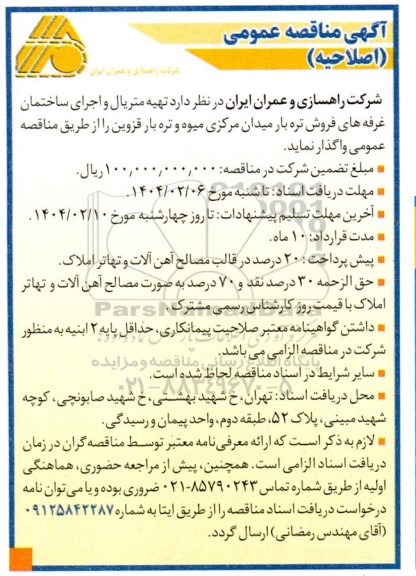 آگهی مناقصه عمومی
(اصلاحیه)
شرکت راهسازی و عمران ایران
شرکت راهسازی و عمران ایران در نظر دارد تهیه متریال و اجرای ساختمان
غرفه های فروش تره بار میدان مرکزی میوه و تره بار قزوین را از طریق مناقصه
عمومی واگذار نماید.
مبلغ تضمین شرکت در مناقصه: ۱۰۰,۰۰۰,۰۰۰,۰۰۰ ریال.
مهلت دریافت اسناد: تا شنبه مورخ ۱۴۰۴/۰۲/۰۶.
آخرین مهلت تسلیم پیشنهادات: تا روز چهارشنبه مورخ ۱۴۰۴/۰۲/۱۰.
مدت قرارداد: ۱۰ ماه.
پیش پرداخت: ۲۰ درصد در قالب مصالح آهن آلات و تهاتر املاک.
حق الزحمه ۳۰ درصد نقد و ۷۰ درصد به صورت مصالح آهن آلات و تهاتر
املاک با قیمت روز کارشناس رسمی مشترک.
ParsNamadData
داشتن گواهینامه معتبر صلاحیت پیمانکاری، حداقل پایه ۲ ابنیه به منظور
شرکت در مناقصه الزامی می باشد.
پایگاه اطلاع رسانی مناقصه و مزایده
سایر شرایط در اسناد مناقصه لحاظ شده است.
۰۲۱-۸۸۳۴۹۶۷۰-۵
محل دریافت اسناد: تهران، خ شهید بهشتی، خ شهید صابونچی، کوچه
شهید مبینی، پلاک ۵۲، طبقه دوم، واحد پیمان و رسیدگی.
لازم به ذکر است که ارائه معرفی‌نامه معتبر توسط مناقصه گران در زمان
دریافت اسناد الزامی است. همچنین، پیش از مراجعه حضوری، هماهنگی
اولیه از طریق شماره تماس ۸۵۷۹۰۲۴۳-۰۲۱ ضروری بوده و یا می‌توان نامه
درخواست دریافت اسناد مناقصه را از طریق ایتا به شماره ۰۹۱۲۵۸۴۲۲۸۷
(آقای مهندس رمضانی) ارسال گردد.